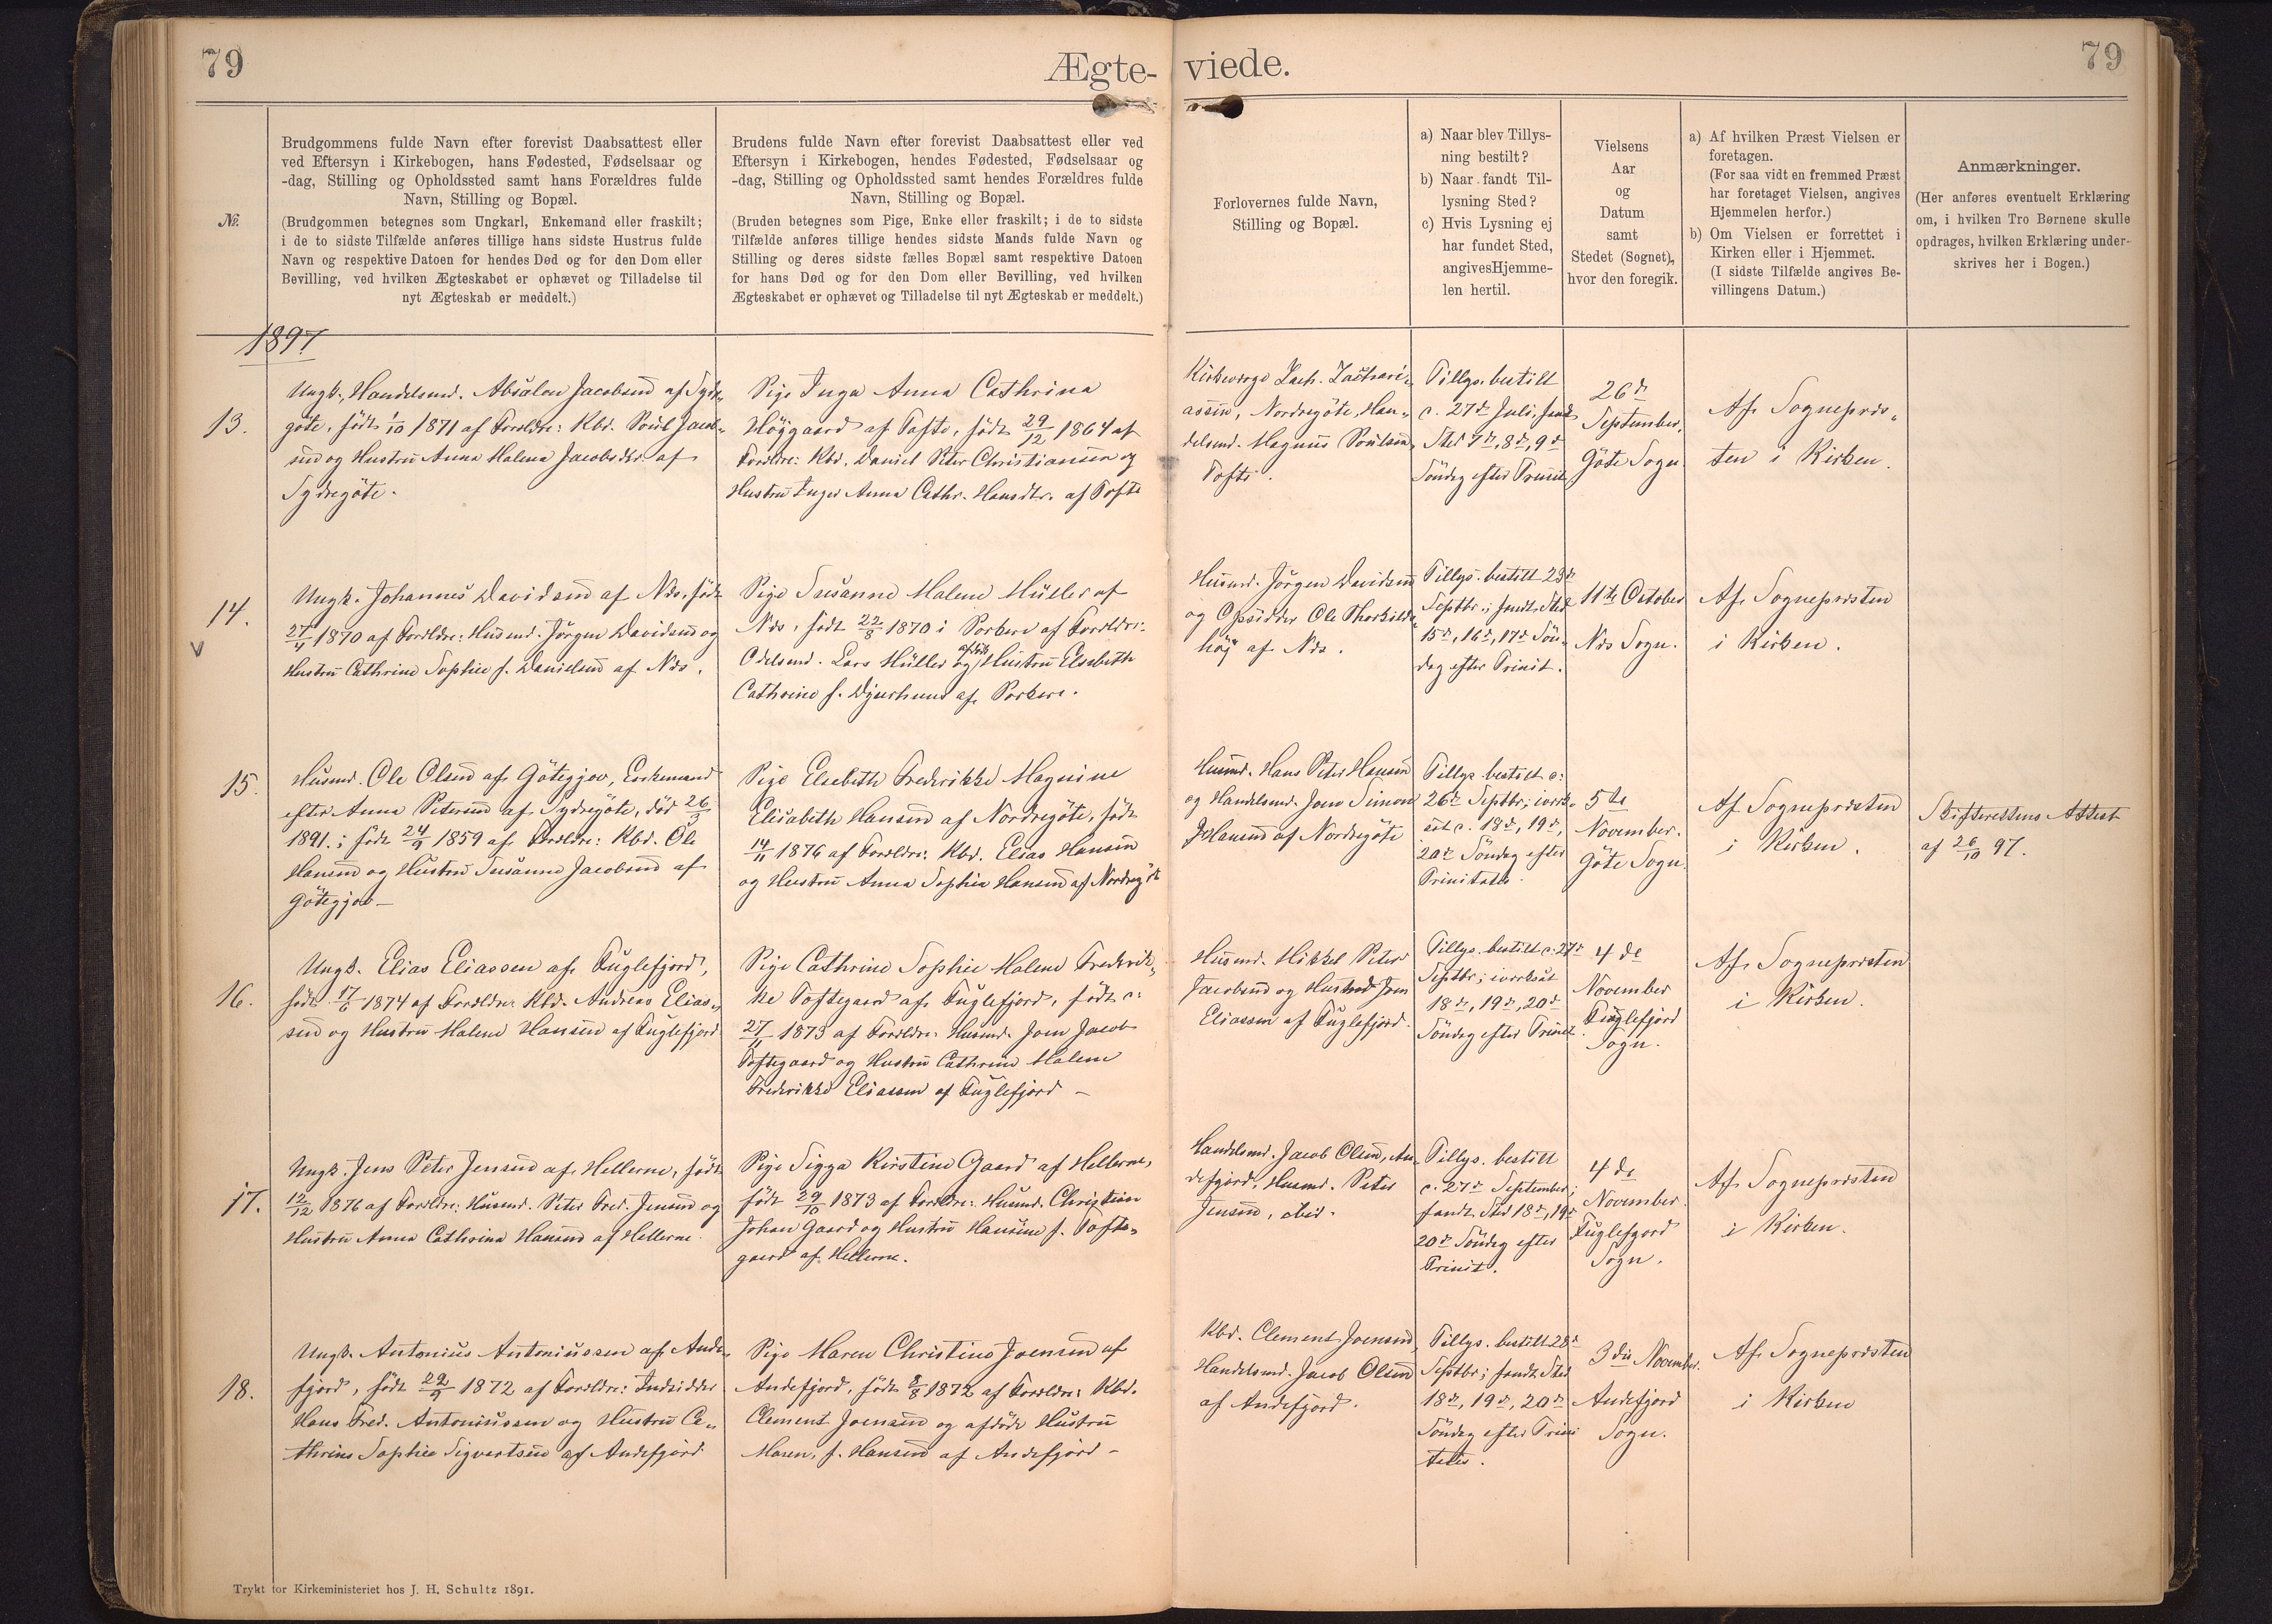 79
Ægte-
viede.
79
No.
Brudgommens fulde Navn efter forevist Daabsattest eller
ved Eftersyn i Kirkebogen, hans Fødested, Fødselsaar og
-dag, Stilling og Opholdssted samt hans Forældres fulde
Navn, Stilling og Bopæl.
(Brudgommen betegnes som Ungkarl, Enkemand eller fraskilt;
i de to sidste Tilfælde anføres tillige hans sidste Hustrus fulde
Navn og respektive Datoen for hendes Død og for den Dom eller
Bevilling, ved hvilken Ægteskabet er ophævet og Tilladelse til
nyt Ægteskab er meddelt.)
Brudens fulde Navn efter forevist Daabsattest eller ved
Eftersyn i Kirkebogen, hendes Fødested, Fødselsaar og
-dag, Stilling og Opholdssted samt hendes Forældres fulde
Navn, Stilling og Bopæl.
(Bruden betegnes som Pige, Enke eller fraskilt; i de to sidste
Tilfælde anføres tillige hendes sidste Mands fulde Navn og
Stilling og deres sidste fælles Bopæl samt respektive Datoen
for hans Død og for den Dom eller Bevilling, ved hvilken
Ægteskabet er ophævet og Tilladelse til nyt Ægteskab er meddelt.)
Forlovernes fulde Navn,
Stilling og Bopæl.
a) Naar blev Tillys-
ning bestilt?
b) Naar fandt Til-
lysning Sted?
c) Hvis Lysning ej
har fundet Sted,
angives Hjemme-
len hertil.
Vielsens
Aar
og
Datum
samt
Stedet (Sognet),
hvor den foregik.
a) Af hvilken Præst Vielsen er
foretagen.
(For saa vidt en fremmed Præst
har foretaget Vielsen, angives
Hjemmelen herfor.)
b) Om Vielsen er forrettet i
Kirken eller i Hjemmet.
(I sidste Tilfælde angives Be-
villingens Datum.)
Anmærkninger.
(Her anføres eventuelt Erklæring
om, i hvilken Tro Børnene skulle
opdrages, hvilken Erklæring under-
skrives her i Bogen.)
1897
13.
Ungk., Handelsmd. Absalon Jacobsen af Sydre-
göte, födt 1/10 1871 af Forældre: Kbd. Poul Jacob-
sen og Hustru Anna Malena Jacobsdtr. af
Sydregöte.
Pige Inga Anna Cathrina
Höygaard af Tofte, födt 29/12 1864 af
Forældre: Kbd. Daniel Peter Christiansen og
Hustru Inger Anna Cathr. Hansdtr. af Tofte
Kirkeværge Zach. Zachari-
assen, Nordregöte, Han-
delsmd. Magnus Poulsen,
Tofte.
Tillys. bestilt
c. 27de Juli, fandt
Sted 7de, 8de, 9de
Söndag efter Trinit.
26de
September,
Göte Sogn.
Af Sognepræs-
ten i Kirken.
14.
v
Ungk. Johannes Davidsen af Næs, födt
27/4 1870 af Forældre: Husmd. Jörgen Davidsen og
Hustru Cathrine Sophie f. Danielsen af Næs.
Pige Susanne Malene Müller af
Næs, födt 22/8 1870 i Porkere af Forældre:
Odelsmd. Lars Müller og Hustru Elsebeth
Cathrine f. Djurhuus af Porkere.
Husmd. Jörgen Davidsen
og Opsidder Ole Thorkilds-
höj af Næs.
Tillys. bestilt 23de
Septbr.; fandt Sted
15de, 16de, 17de Sön-
dag efter Trinit.
11te October
Næs Sogn.
Af Sognepræsten
i Kirken.
15.
Husmd. Ole Olsen af Götegjov, Enkemand
efter Anna Petersen af Sydregöte, död
1891.; födt 24/9 1859 af Forældre: Kbd. Ole
Hansen og Hustru Susanna Jacobsen af
Götegjov—
Pige Elsebeth Frederikke Magnine
Elisabeth Hansen af Nordregöte, födt
14/11 1876 af Forældre: Kbd. Elias Hansen
og Hustru Anna Sophia Hansen af Nordregöte
Husmd. Hans Peter Hansen
og Handelsmd. Joen Simon
Hansen af Nordregöte
Tillys. bestilt c.
26de Septbr.; iværk-
sat c. 18de, 19de,
20de Söndag efter
Trinitatis.
5te
November.
Göte Sogn.
Af Sognepræsten
i Kirken.
Skifterettens Attest
af 26/10 97.
16.
Ungk. Elias Eliassen af Fuglefjord,
födt 17/6 1874 af Forældre: Kbd. Andreas Elias-
sen og Hustru Malene Hansen af Fuglefjord
Pige Cathrine Sophie Malene Frederik-
ke Toftegaard af Fuglefjord, födt c.
27/11 1873 af Forældre: Husmd. Joen Jacob
Toftegaard og Hustru Cathrine Malene
Frederikke Eliassen af Fuglefjord —
Husmd. Mikkel Peter
Jacobsen og Husmd. Joen
Eliassen af Fuglefjord.
Tillys. bestilt c. 27de
Septbr.; iværksat
18de, 19de, 20de
Söndag efter Trinit.
4de
November
Fuglefjord
Sogn.
Af Sognepræsten
i Kirken.
17.
Ungk. Jens Peter Jensen af Hellerne, födt
12/12 1876 af Forældre: Husmd. Peter Fred. Jensen og
Hustru Anna Cathrina Hansen af Hellerne.
Pige Sigga Kirstine Gaard af Hellerne,
födt 29/10 1873 af Forældre: Husmd. Christian
Johan Gaard og Hustru Hansine f. Tofte-
gaard af Hellerne.
Handelsmd. Jacob Olsen, An-
defjord, Husmd. Peter
Jensen, ibid.
Tillys. bestilt
c. 27de September;
fandt Sted 18de, 19de
20de Söndag efter
Trinit.
4de
November.
Fuglefjord
Sogn.
Af Sognepræsten
i Kirken.
18.
Ungk. Antonius Antoniussen af Ande-
fjord, födt 22/9 1872 af Forældre: Indsidder
Hans Fred. Antoniussen og Hustru Ca-
thrine Sophie Sigvertsen af Andefjord
Pige Maren Christine Joensen af
Andefjord, födt 8/8 1872 af Forældre: Kbd.
Clement Joensen og afdöde Hustru
Maren, f. Hansen af Andefjord —
Kbd. Clement Joensen,
Handelsmd. Jacob Olsen
af Andefjord.
Tillys. bestilt 28de
Septbr.; fandt Sted
18de, 19de, 20de
Söndag efter Trini
tatis.
3die November.
Andefjord
Sogn.
Af Sognepræsten
i Kirken
Trykt for Kirkeministeriet hos J. H. Schultz 1891.